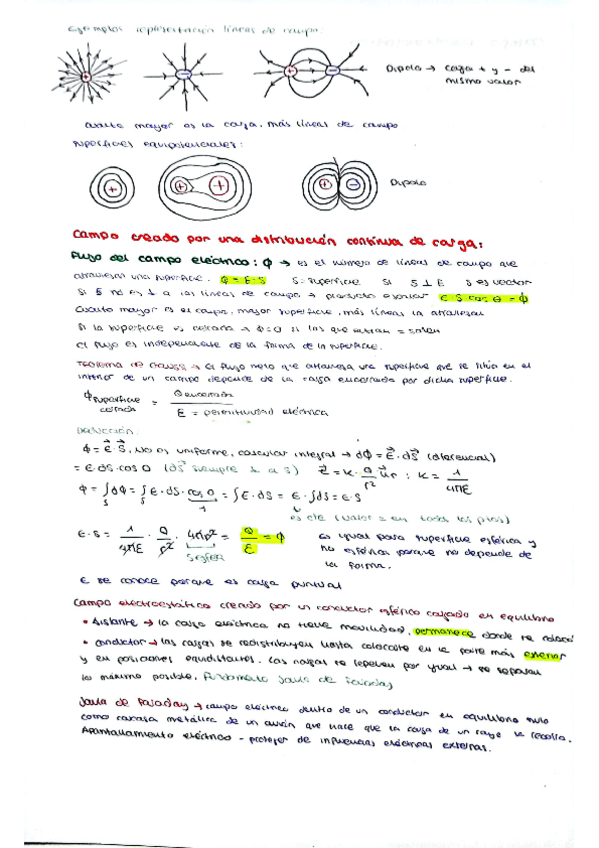 Ejemplos representación líneas de campo:
Dipolo → carga + y - del
mismo valor
cuanto mayor es la carga, más líneas de campo
superficies equipotenciales:
Dipolo
Campo creado por una distribución continua de carga:
Flujo del campo eléctrico: ϕ → es el número de líneas de campo que
atraviesan una superficie. ϕ = E·S S: superficie si S ⊥ E S es vector
Si S no es ⊥ a las líneas de campo → producto escalar E S cos θ = ϕ
Cuanto mayor es el campo, mayor superficie, más líneas la atraviesan
Si la superficie es cerrada → ϕ=0 si las que entran = salen
El flujo es independiente de la forma de la superficie.
Teorema de Gauss → El flujo neto que atraviesa una superficie que se sitúa en el
interior de un campo depende de la carga encerrada por dicha superficie.
ϕ superficie cerrada = Q encerrada / ε = permitividad eléctrica
Deducción:
ϕ = E·S, no es uniforme, calcular integral → dϕ = E·dS (diferencial)
= E·dS·cos 0 (dS siempre ⊥ a S) E = K·Q/r² ur ; K = 1/4πε
ϕ = ∫dϕ = ∫E·dS·cos 0 = ∫E·dS = E·∫dS = E·S
1
es cte (valor = en todos los ptos)
E·S = 1/4πε · Q/r² · 4πr² = Q/ε = ϕ es igual para superficie esférica y
ESFERA no esférica porque no depende de
la forma.
E se conoce porque es carga puntual
Campo electrostático creado por un conductor esférico cargado en equilibrio
• Aislante → la carga eléctrica no tiene movilidad, permanece donde se colocó
• conductor → las cargas se redistribuyen hasta colocarse en la parte más exterior
y en posiciones equidistantes. Las cargas se repelen por igual → se separan
lo máximo posible, fundamento Jaula de Faraday
Jaula de Faraday → campo eléctrico dentro de un conductor en equilibrio nulo
como carcasa metálica de un avión que hace que la carga de un rayo la recorra.
Apantallamiento eléctrico - proteger de influencias eléctricas externas.